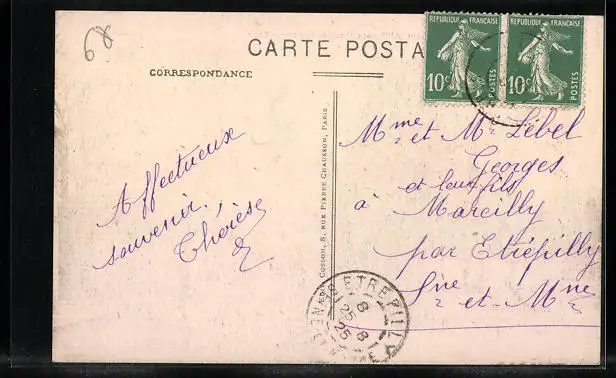 68
CARTE POSTA
CORRESPONDANCE
REPUBLIQUE FRANÇAISE
10c POSTES
REPUBLIQUE FRANÇAISE
10c POSTES
Affectueux
souvenir.
Thérèse
COSSON, 8, RUE PIERRE CHAUSSON, PARIS
Mme et Mr Lébel
Georges
et leur fils
à Marcilly
par Etrépilly
Sne et Mne
ETREPILLY
8 - 8
25